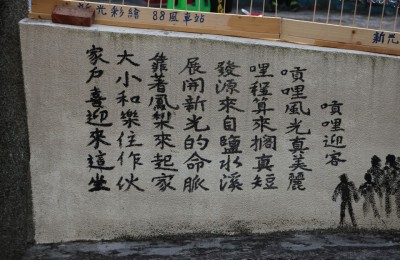 新光彩繪 88風車站
新光
嗊哩迎客
嗊哩風光真美麗
哩程算來擱真短
發源來自鹽水溪
展開新光的命脈
靠著鳳梨來起家
大小和樂住作伙
家戶喜迎來這坐